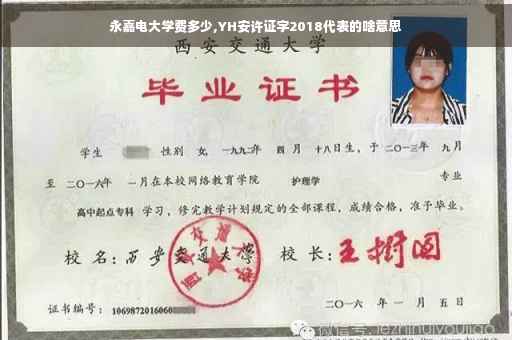 永嘉电大学费多少,YH安许证字2018代表的啥意思
西安交通大学
毕业证书
学生 性别 女, 一九九二年 四月 十八日生, 于 二〇一三年 九月
至 二〇一六年 一月在本校网络教育学院 护理学 专业
高中起点专科 学习, 修完教学计划规定的全部课程, 成绩合格, 准予毕业。
校名: 西安交通大学 校长: 王树国
西安交通大学
证书编号: 1069872016060
二〇一六年 一月 五日
微信号: lezhihuiyoujiao